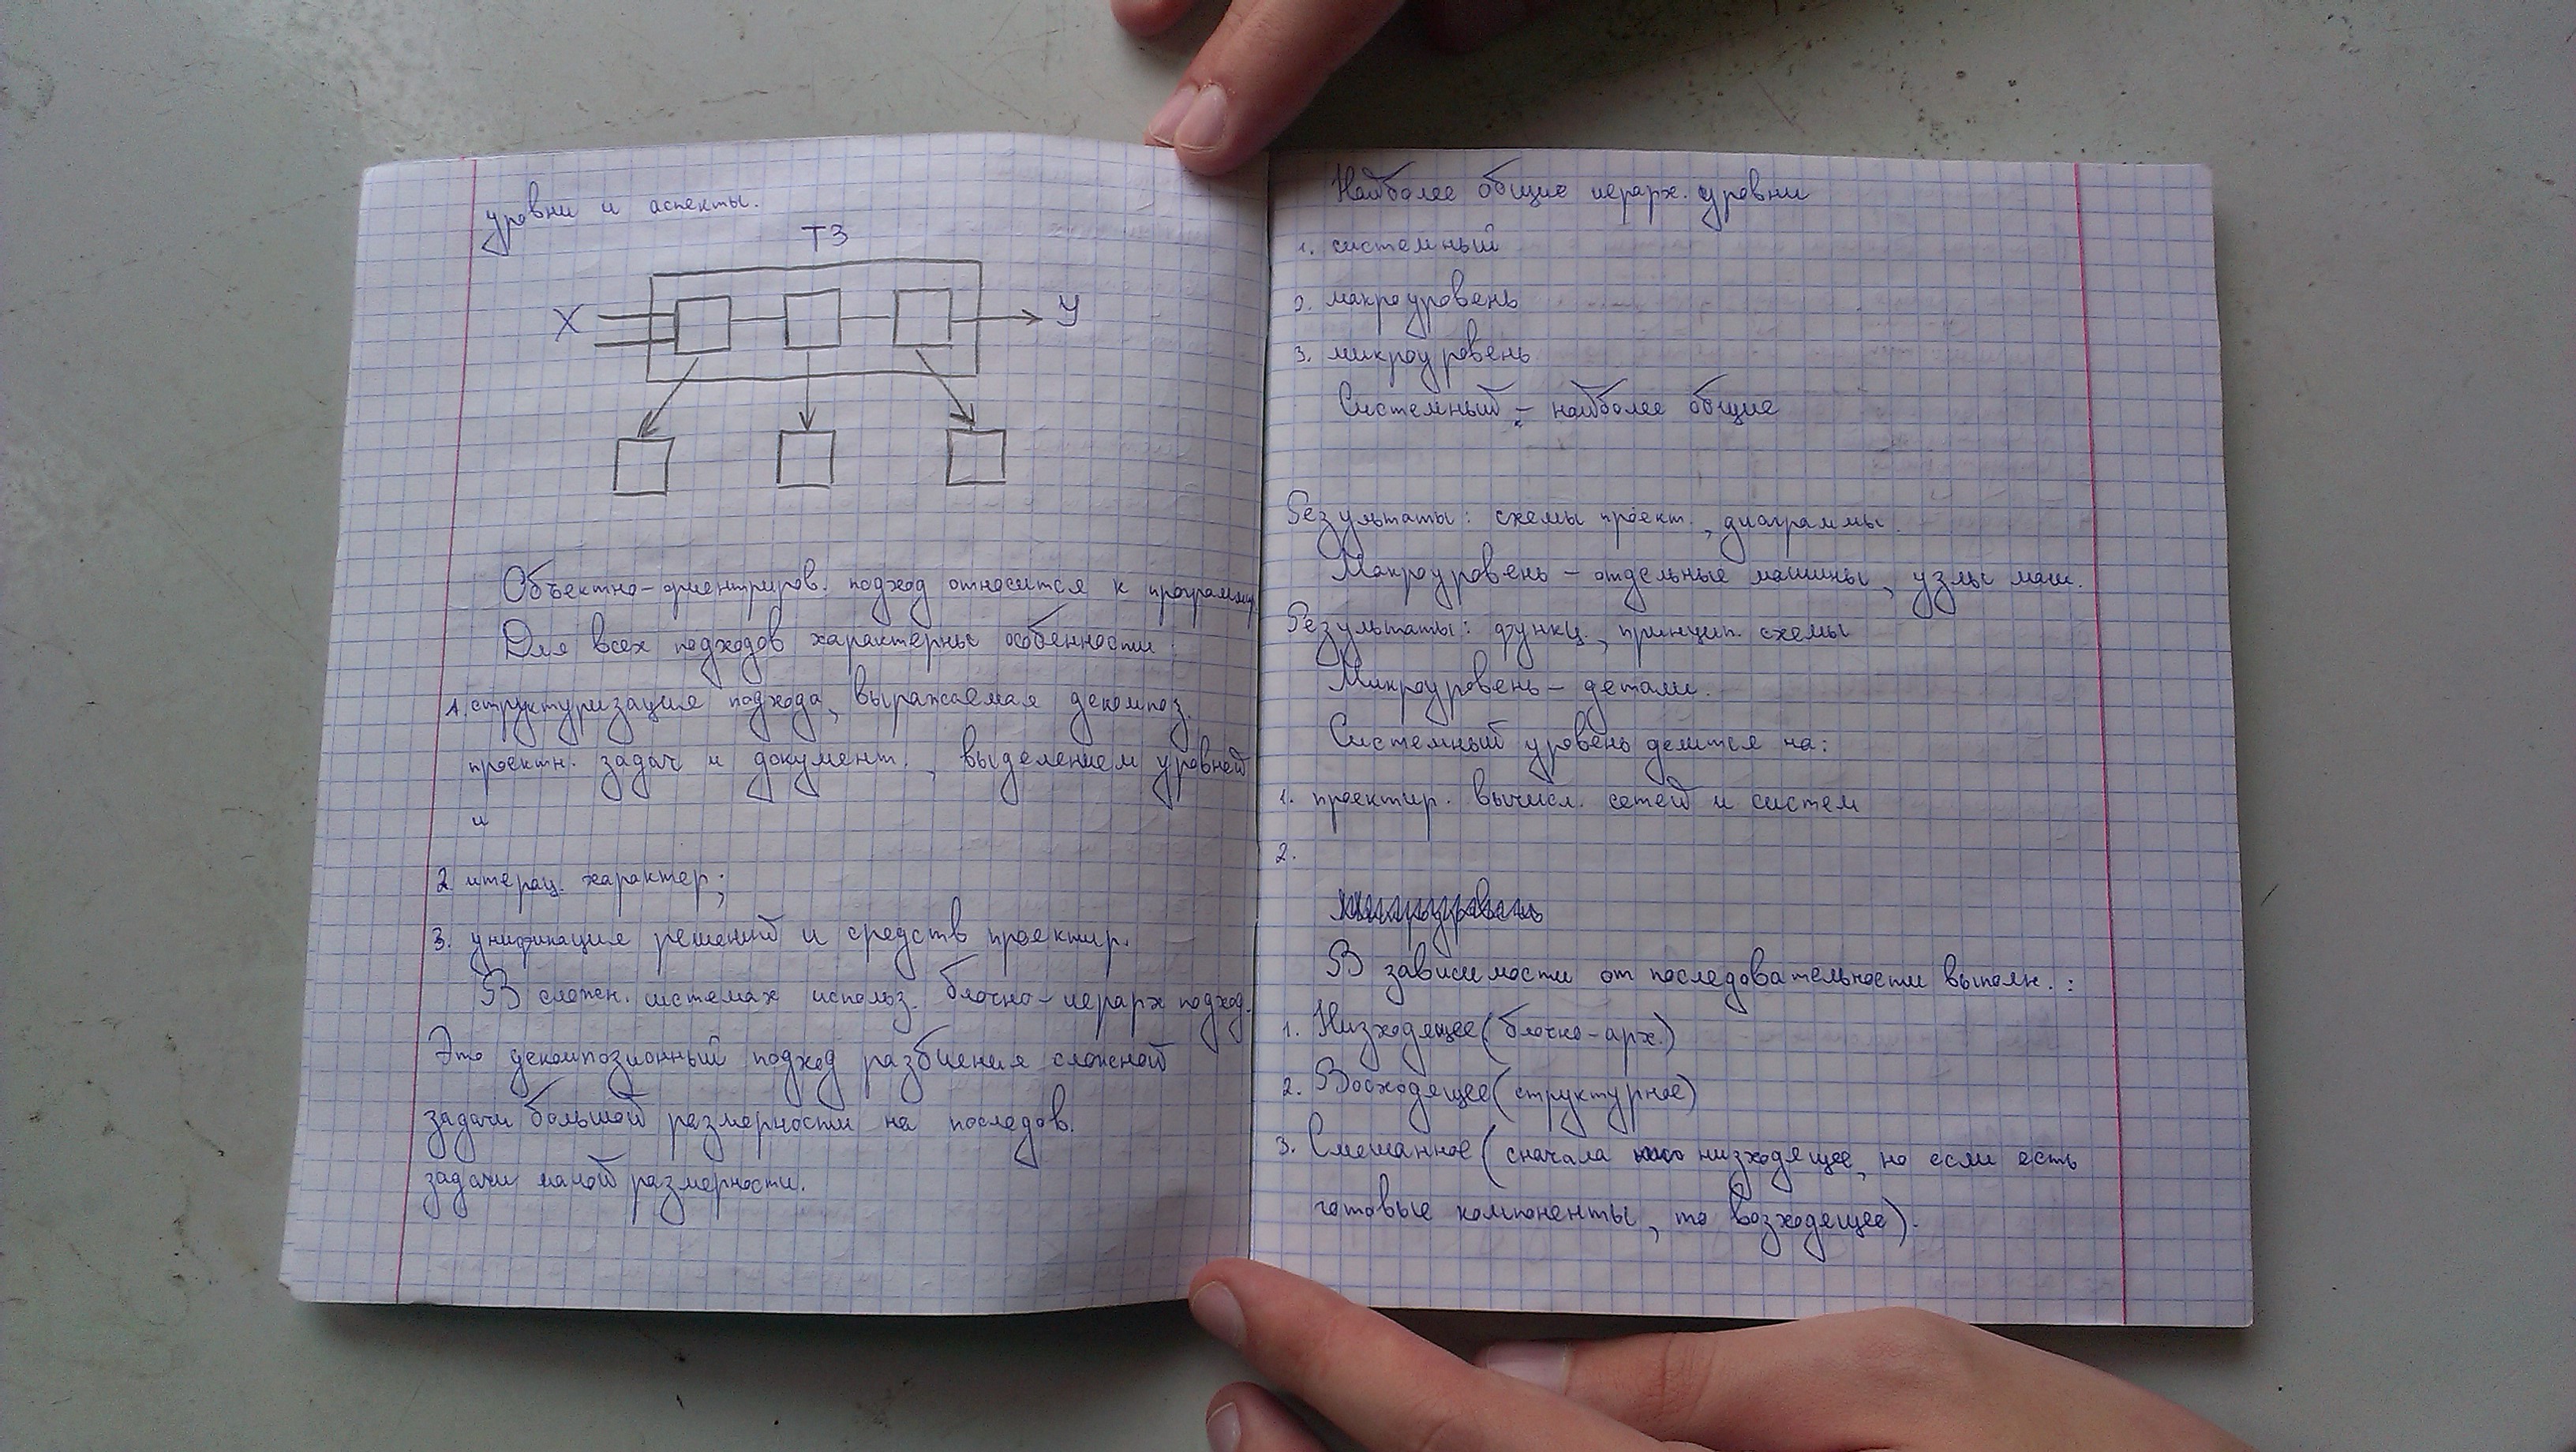 уровни и аспекты.
ТЗ
X
У
Объектно-ориентиров. подход относится к программир.
Для всех подходов характерны особенности:
1. структуризация подхода, выражаемая декомпоз.
проектн. задач и документ., выделением уровней
и
2 итерац. характер;
3. унификация решений и средств проектир.
В сложн. системах использ. блочно-иерарх подход.
Это декомпозионный подход разбиения сложной
задачи большой размерности на последов.
задачи малой размерности.
Наиболее общие иерарх. уровни
1. системный
2. макроуровень
3. микроуровень
Системный - наиболее общие
Результаты: схемы проект., диаграммы.
Макроуровень - отдельные машины, узлы маш.
Результаты: функц., принцип. схемы
Микроуровень - детали.
Системный уровень делится на:
1. проектир. вычисл. сетей и систем
2.
В зависимости от последовательности выполн.:
1. Низходящее (блочно-арх.)
2. Восходящее (структурное)
3. Смешанное (сначала низходящее, но если есть
готовые компоненты, то возходящее).